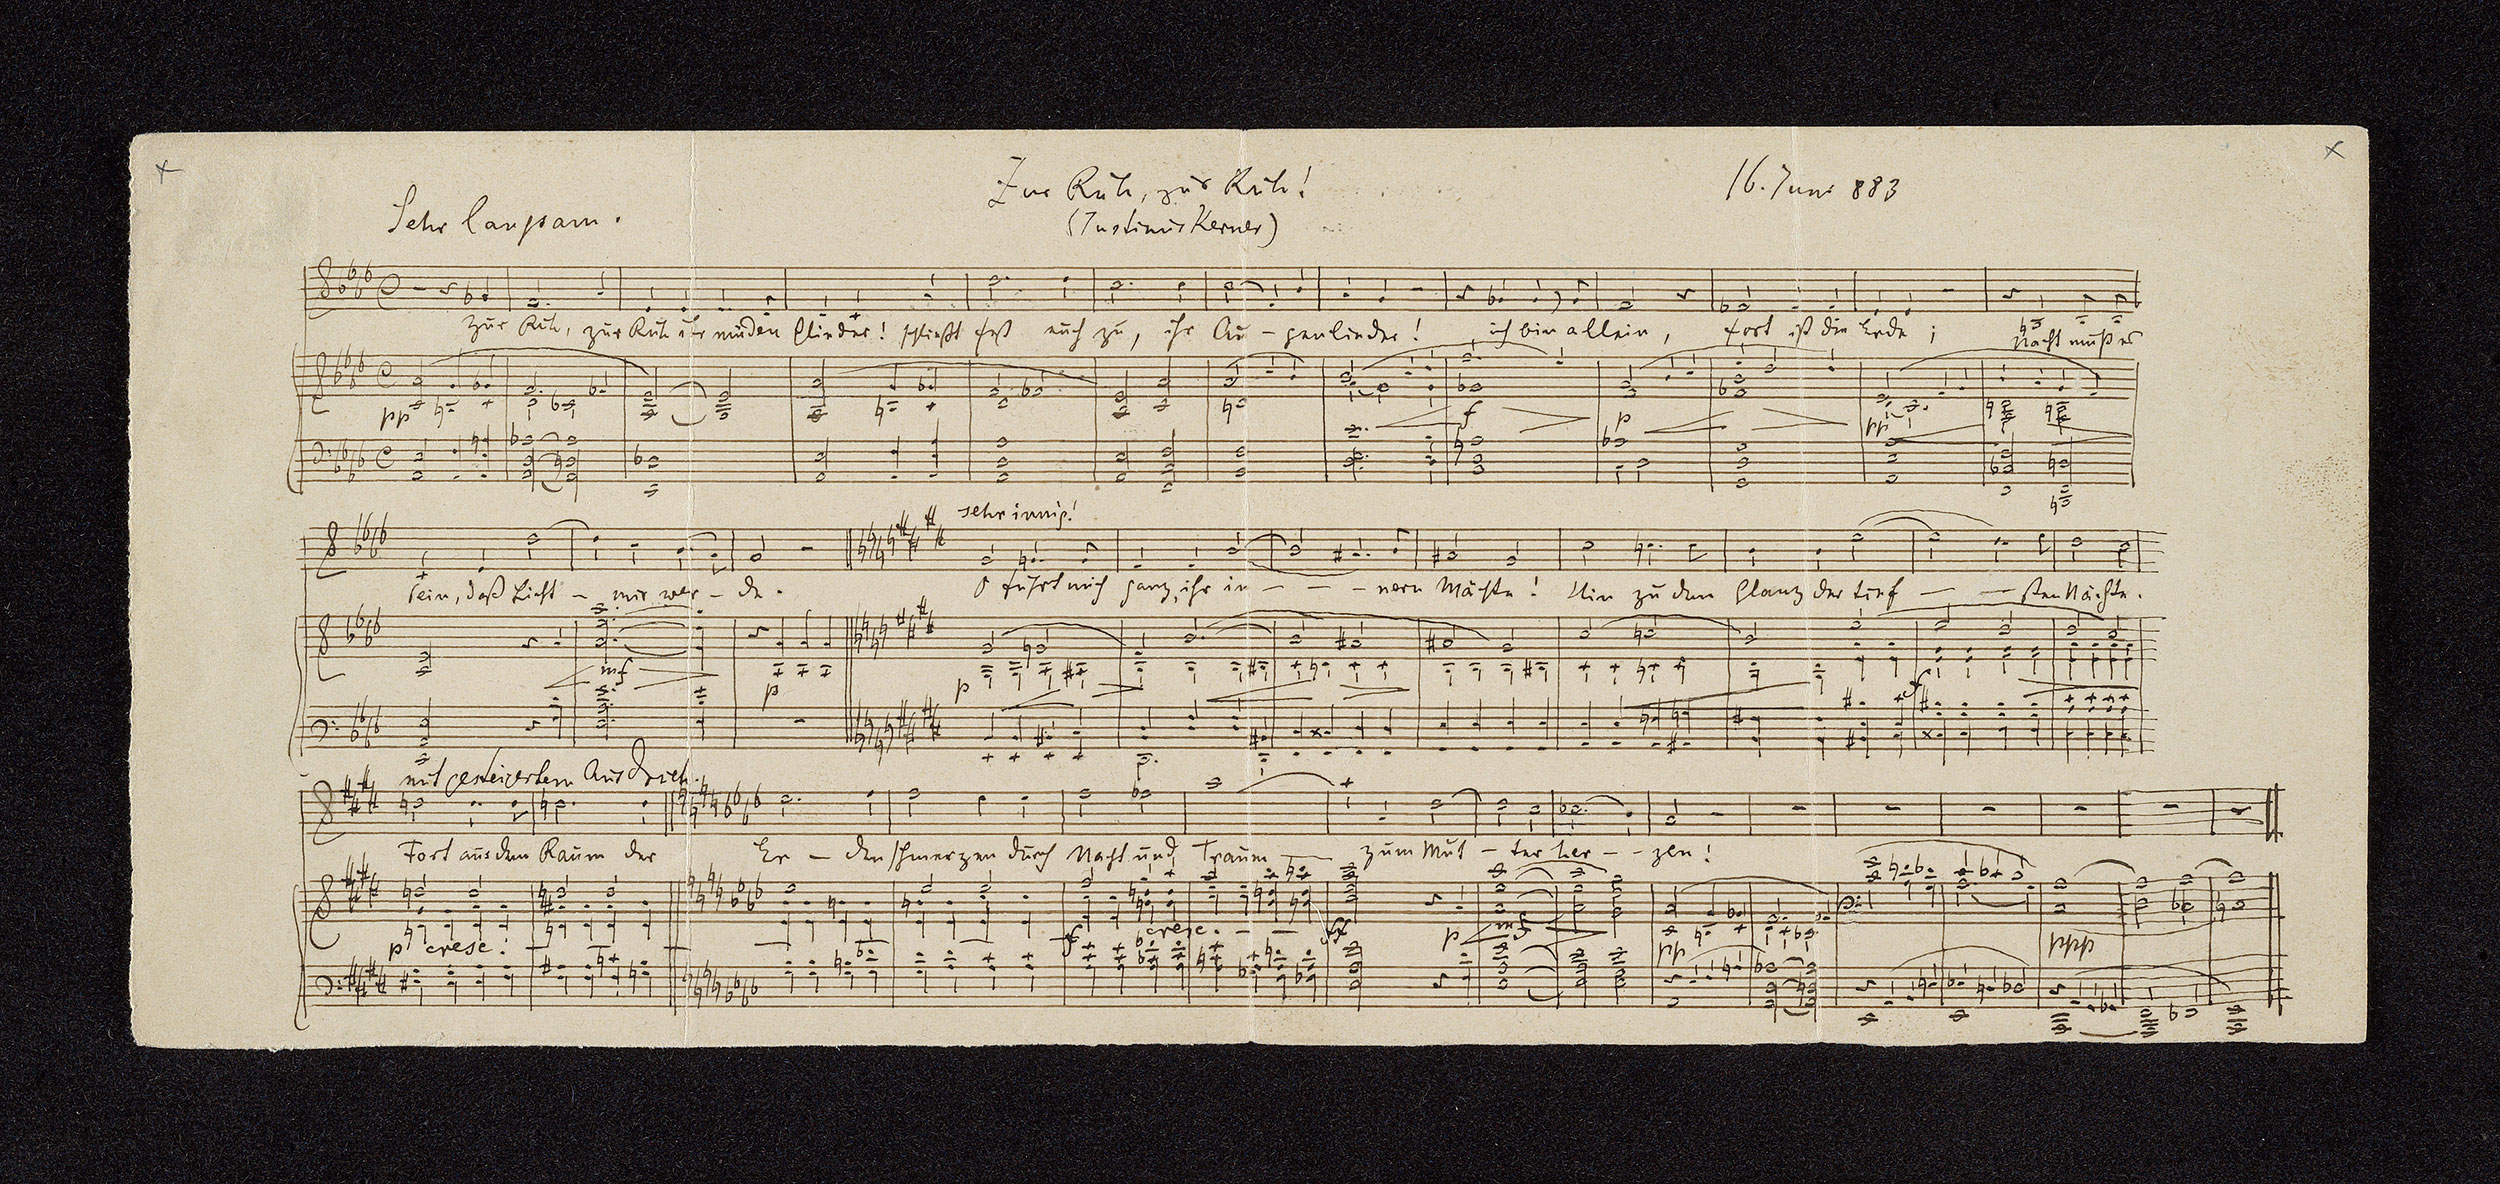 Zur Ruh, zur Ruh!
16. Juni 883
Sehr langsam.
(Justinus Kerner)
zur Ruh, zur Ruh ihr müden Glieder! schließt fest euch zu, ihr Au - genlieder! ich bin allein, fort ist die Erde; Nacht muß es
pp f p pp
sehr innig!
sein, daß Licht - mir wer - de. O führt mich ganz, ihr in - - - nern Mächte! Hin zu dem Glanz der tief - - sten Nächte.
mf p p f
mit gesteigertem Ausdruck.
Fort aus dem Raum der Er - denschmerzen durch Nacht und Traum - zum Mut - ter her - - zen!
p cresc. - - - - f cresc. - - ff p mf pp ppp